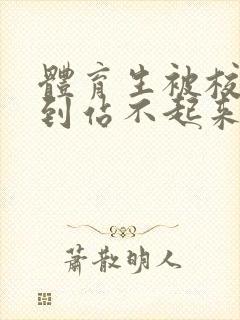 體育生被校
到站不起來
蕭散明人